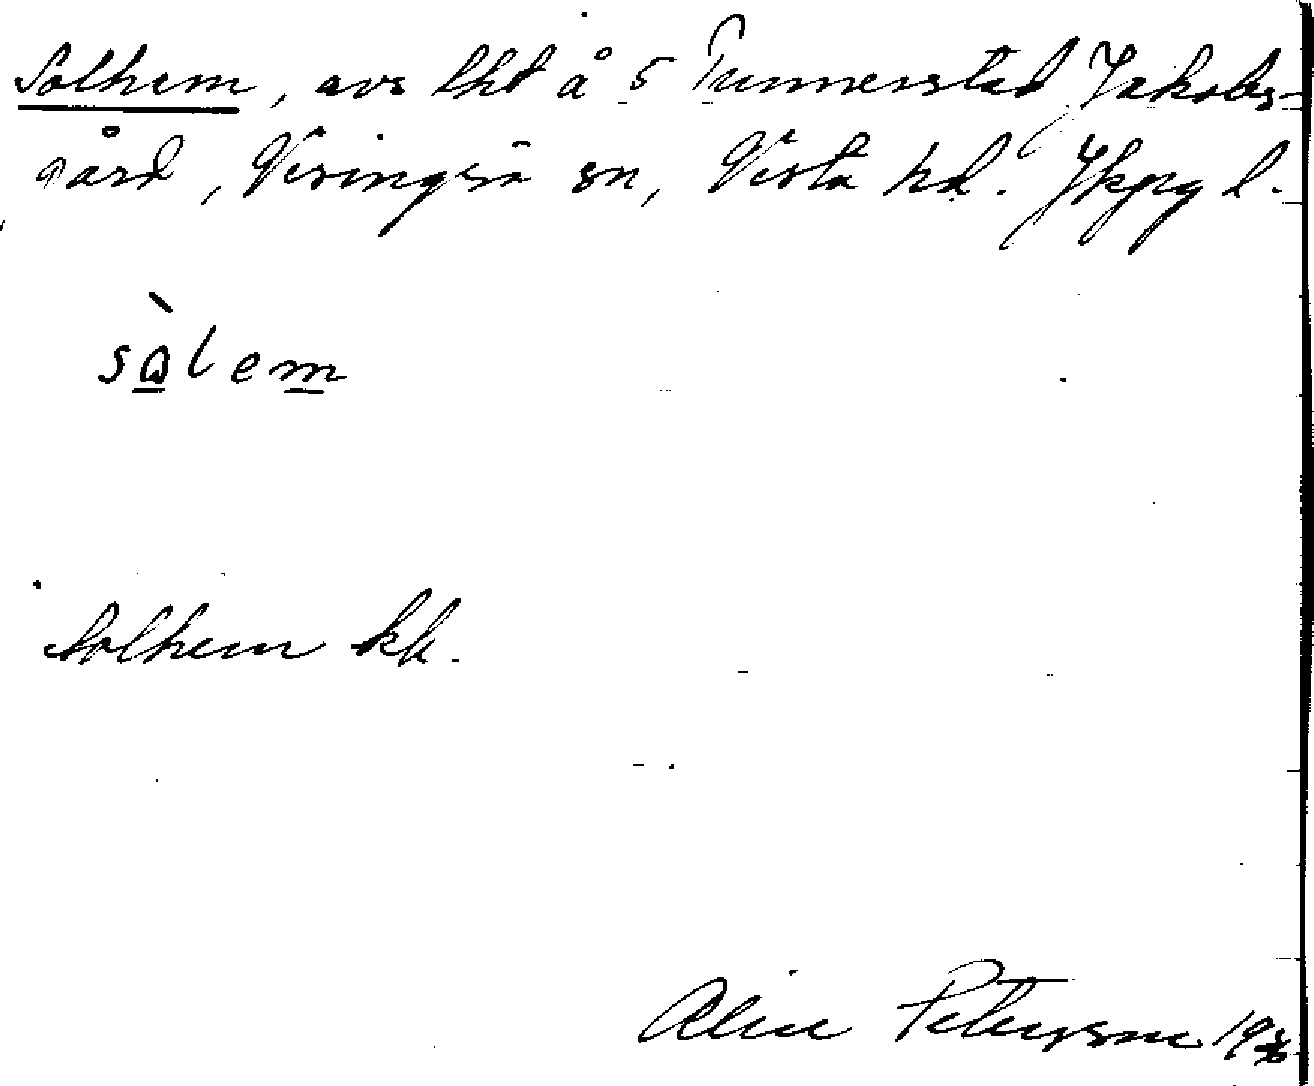 Solhem, avs lht å 5 Tunnerstad Jakobs-
gård, Visingsö sn, Vista hd. Jkpg l.
sàlem
Solhem kk.
Petersson 19